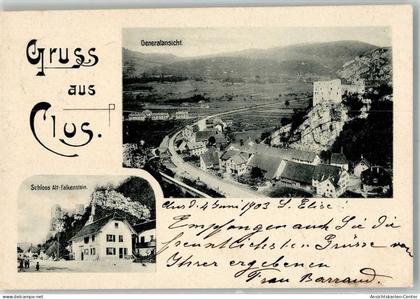 Gruss
aus
Clus.
Generalansicht.
Schloss Alt-Falkenstein.
Clus d. 4 Juni 1903 S. Elise!
Empfangen auch Sie die
freundlichsten Grüsse von
Ihrer ergebenen
Frau Barraud.
www.ansichtskartenversand.com